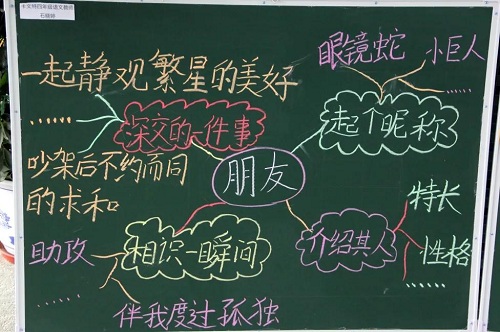 眼镜蛇 小巨人
一起静观繁星的美好
......
......
深交的一件事
起个昵称
吵架后不约而同
的求和
朋友
特长
助攻
相识一瞬间
介绍其人
性格
......
......
伴我度过孤独